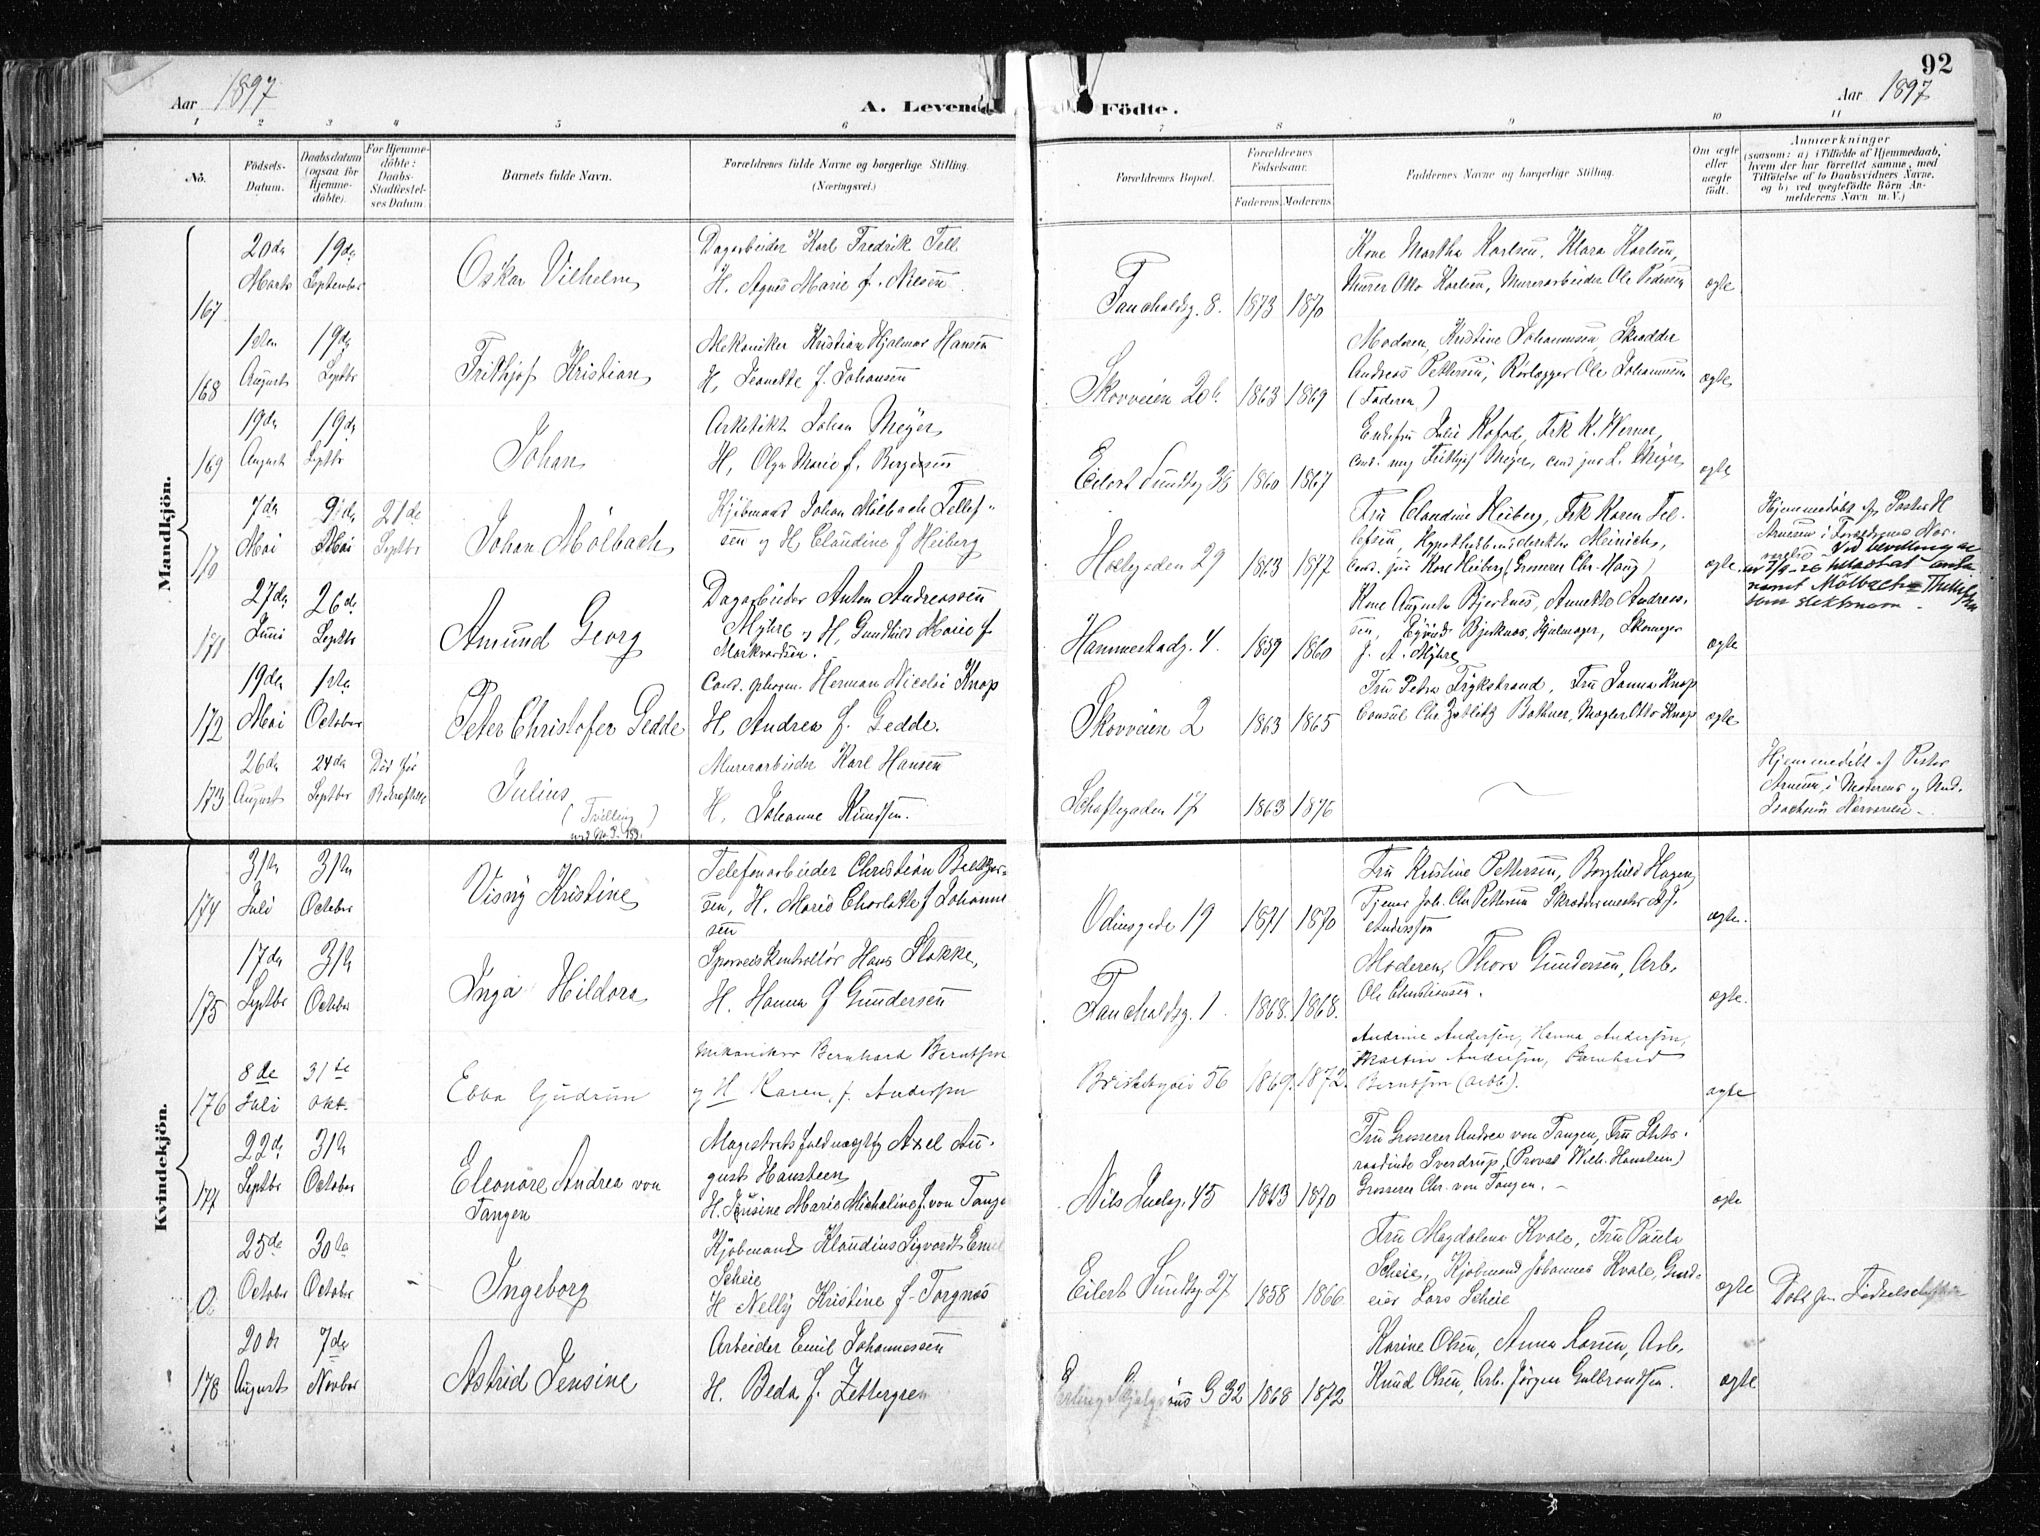 92
Aar 1897
A. Levende
Födte.
Aar 1897
1 2 3 4 5 6 7 8 9 10 11
No.
Födsels-
Datum.
Daabsdatum
(ogsaa for
Hjemme-
döbte).
For Hjemme-
döbte:
Daabs-
Stadfæstel-
ses Datum
Barnets fulde Navn.
Forældrenes fulde Navne og borgerlige Stilling.
(Næringsvei.)
Forældrenes Bopæl.
Forældrenes
Födselsaar.
Faderens. Moderens.
Faddernes Navne og borgerlige Stilling.
Om ægte
eller
uægte
födt.
Anmærkninger
(saasom: a) i Tilfælde af Hjemmedaab,
hvem der har forrettet samme, med
Tilföielse af to Daabsvidners Navne,
og b) ved uegtefödte Börn An-
melderens Navn m. V.)
Mandkjön.
167
20de
Marts
19de
September
Oskar Vilhelm
Dagarbeider Karl Fredrik Fell
H. Agnes Marie f. Nilsen
Fauchaldsg. 8.
1873 1870
Kone Martha Karlsen, Klara Karlsen,
Murer Otto Karlsen, Murerarbeider Ole Pedersen
ægte
168
1ste
August
19de
Septbr
Frithjof Kristian
Mekaniker Kristian Hjalmar Hansen
H. Jeanette f. Johansen
Skovveien 20b.
1863 1869
Moderen, Kristine Johannesen Skrædder
Andreas Pettersen, Rörlægger Ole Johannesen
(Faderen)
ægte
169
19de
August
19de
Septbr
Johan
Arkitekt Johan Meyer
H. Olga Marie f. Borgersen
Eilert Sundtsg 36
1860 1867
Enkefru Julie Kofod, Frk K. Werner,
Cand. mag Frithjof Meyer, cand jur L. Meyer
ægte
170
7de
Mai
9de
Mai
21de
Septbr
Johan Mölbach
Kjöbmand Johan Mölbach Tellef-
sen og H. Claudine f Heiberg
Holtegaden 29
1863 1877
Fru Claudine Heiberg, Frk Karen Tel-
lefsen, Hypothekbankdirektör Meinich,
Cand. jur Karl Heiberg (Grosserer Chr. Haug)
ægte.
Hjemmedöbt af Pastor H
Arnesen i Forældrenes Nær-
værelse - Ved bevilling av
7/9-26 antat
navnet Mölbach-Thellefsen
som slektsnavn.
171
27de
Juni
26de
Septbr
Amund Georg
Dagarbeider Anton Andreassen
Myhre og H. Gunhild Marie f
Markvardsen.
Hammerstadg. 4.
1859 1860
Kone Augusta Bjerknes, Annette Andreas-
sen, Eyvind Bjerknes, Hjulmager, Skomager
J. A. Myhre
ægte
172
19de
Mai
1ste
October
Peter Christofer Gedde
Cand. pharm. Herman Nicolai Knap
H. Andrea f. Gedde.
Skovveien 2
1863 1865
Fru Petra Frykstrand, Fru Janna Knap
Consul Chr Bothner, Mægler Otto Knap
ægte
173
26de
August
24de
Septbr
Död för
Julius
(Tvilling)
Murerarbeider Karl Hansen
H. Johanne Knudsen.
Schaftegaden 17
1863 1876
Hjemmedöbt af Pastor
Arnesen i Moderens og Knud.
Isachsens Nærværelse.
Kvindekjön.
174
31te
Juli
3die
October
Visny Kristine
Telefonarbeider Christian Berger-
sen, H. Marie Charlotte f Johanne
sen
Odinsgade 19
1871 1870
Fru Kristine Pettersen, Borghild Hagen,
Tjener Joh. Chr Pettersen Skræddermester A J.
Andersson
ægte.
175
17de
Septbr
3die
October
Inga Hildora
Sporveiskontrollör Hans Stokke,
H. Hanna f Gundersen
Fauchaldsg. 1
1868. 1868.
Moderen, Thora Gundersen, Arb.
Ole Christiansen.
ægte.
176
8de
Juli
31te
Okt.
Ebba Gudrun
Mekaniker Bernhard Berntsen
og H Karen f. Andersen
Briskebyvei 56
1869. 1872.
Andrine Andersen, Hanna Andersen,
Martin Andersen, Bernhard
Berntsen (arbb).
ægte
177
22de
Septbr
3die
October
Eleonore Andrea von
Tangen
Magistratsfuldmægtig Axel Au-
gust Hansteen
H. Marie Michaline f. von Tange
Nils Juelsg. 45
1870
Fru Grosserer Andrea von Tangen, Fru Stats-
raadinde Sverdrup, (Provst Wilh. Hansteen)
Grosserer Chr. von Tangen.
ægte
0
25de
October
30te
October
Ingeborg
Kjöbmand Klaudius Sigvardt Emil
Scheie
H Nelly Kristine f. Torgnæs
Eilert Sundtsg 27
1858 1866
Fru Magdalena Kvale, Fru Paula
Scheie, Kjöbmand Johannes Kvale, Gaard-
eier Lars Scheie
ægte
178
20de
August
7de
Novbr
Astrid Jensine
Arbeider Emil Johannessen
H. Beda f. Zettergren
Erling Skjalgsöns G 32
1868 1872
Karine Olsen, Anna Larsen, Arb.
Knud Olsen, Arb. Jörgen Gulbrandsen.
ægte